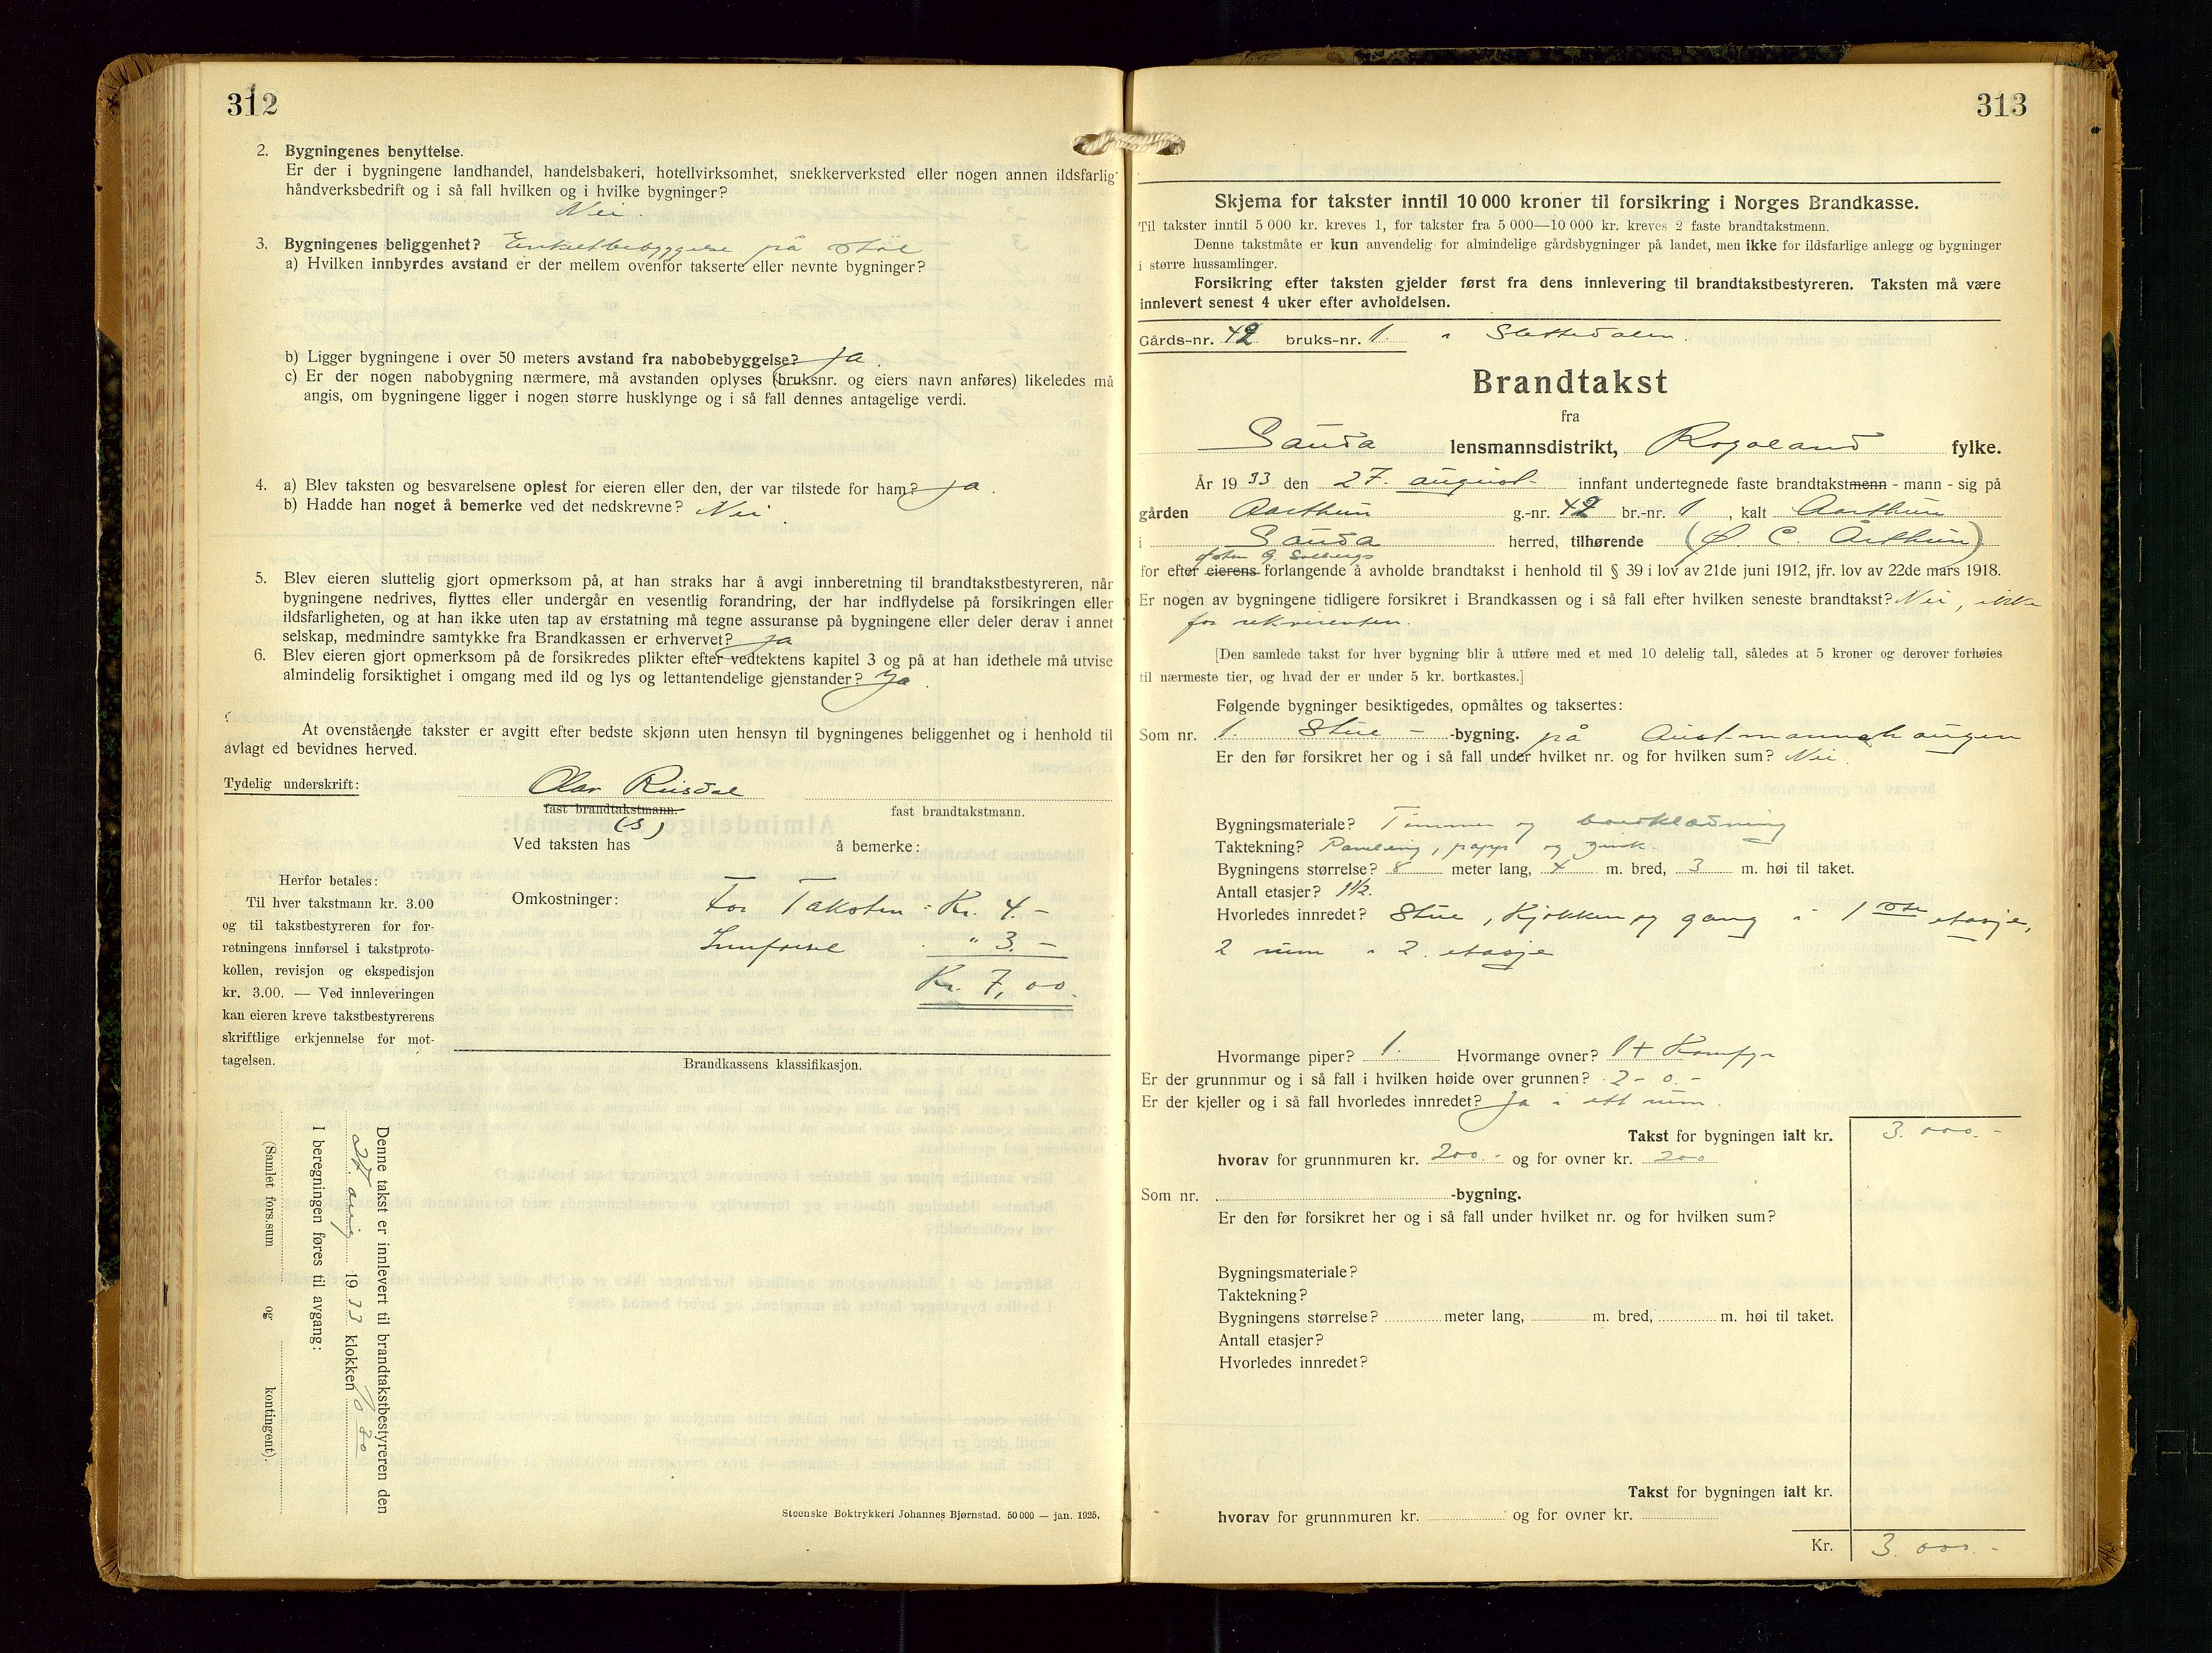 312
2. Bygningenes benyttelse.
Er der i bygningene landhandel, handelsbakeri, hotellvirksomhet, snekkerverksted eller nogen annen ildsfarlig
håndverksbedrift og i så fall hvilken og i hvilke bygninger?
Nei.
3. Bygningenes beliggenhet? Enkeltbebyggelse på støl
a) Hvilken innbyrdes avstand er der mellem ovenfor takserte eller nevnte bygninger?
b) Ligger bygningene i over 50 meters avstand fra nabobebyggelse? Ja.
c) Er der nogen nabobygning nærmere, må avstanden oplyses (bruksnr. og eiers navn anføres) likeledes må
angis, om bygningene ligger i nogen større husklynge og i så fall dennes antagelige verdi.
4. a) Blev taksten og besvarelsene oplest for eieren eller den, der var tilstede for ham? Ja.
b) Hadde han noget å bemerke ved det nedskrevne? Nei.
5. Blev eieren sluttelig gjort opmerksom på, at han straks har å avgi innberetning til brandtakstbestyreren, når
bygningene nedrives, flyttes eller undergår en vesentlig forandring, der har indflydelse på forsikringen eller
ildsfarligheten, og at han ikke uten tap av erstatning må tegne assuranse på bygningene eller deler derav i annet
selskap, medmindre samtykke fra Brandkassen er erhvervet? Ja
6. Blev eieren gjort opmerksom på de forsikredes plikter efter vedtektens kapitel 3 og på at han idethele må utvise
almindelig forsiktighet i omgang med ild og lys og lettantendelige gjenstander? Ja.
At ovenstående takster er avgitt efter bedste skjønn uten hensyn til bygningenes beliggenhet og i henhold til
avlagt ed bevidnes herved.
Tydelig underskrift: Olav Riisdal
fast brandtakstmann. fast brandtakstmann.
(s)
Ved taksten has å bemerke:
Herfor betales:
Til hver takstmann kr. 3.00
og til takstbestyreren for for-
retningens innførsel i takstproto-
kollen, revisjon og ekspedisjon
kr. 3.00. — Ved innleveringen
kan eieren kreve takstbestyrerens
skriftlige erkjennelse for mot-
tagelsen.
Omkostninger: For Taksten: Kr. 4.-
Innførsel " 3.-
Kr. 7,00.
Brandkassens klassifikasjon.
Denne takst er innlevert til brandtakstbestyreren den
27. aug 1933 klokken 10 30
I beregningen føres til avgang:
(Samlet fors.sum og kontingent).
Steenske Boktrykkeri Johannes Bjørnstad. 50 000 — jan. 1925.
313
Skjema for takster inntil 10 000 kroner til forsikring i Norges Brandkasse.
Til takster inntil 5 000 kr. kreves 1, for takster fra 5 000—10 000 kr. kreves 2 faste brandtakstmenn.
Denne takstmåte er kun anvendelig for almindelige gårdsbygninger på landet, men ikke for ildsfarlige anlegg og bygninger
i større hussamlinger.
Forsikring efter taksten gjelder først fra dens innlevering til brandtakstbestyreren. Taksten må være
innlevert senest 4 uker efter avholdelsen.
Gårds-nr. 42 bruks-nr. 1. i Slettedalen.
Brandtakst
fra
Sauda lensmannsdistrikt, Rogaland fylke.
År 1933 den 27. august innfant undertegnede faste brandtakstmenn - mann - sig på
gården Aarthun g.-nr. 42 br.-nr. 1, kalt Aarthun
i Sauda herred, tilhørende (Ø. C. Årthun)
John G. Solbergs
for efter eierens forlangende å avholde brandtakst i henhold til § 39 i lov av 21de juni 1912, jfr. lov av 22de mars 1918.
Er nogen av bygningene tidligere forsikret i Brandkassen og i så fall efter hvilken seneste brandtakst? Nei, ikke
for rekvirenten.
[Den samlede takst for hver bygning blir å utføre med et med 10 delelig tall, således at 5 kroner og derover forhøies
til nærmeste tier, og hvad der er under 5 kr. bortkastes.]
Følgende bygninger besiktigedes, opmåltes og taksertes:
Som nr. 1. Stue - -bygning. på Austmannahaugen
Er den før forsikret her og i så fall under hvilket nr. og for hvilken sum? Nei.
Bygningsmateriale? Tømmer og bordklædning
Taktekning? Paneling, papp og zink.
Bygningens størrelse? 8 meter lang, 4 m. bred, 3 m. høi til taket.
Antall etasjer? 1½.
Hvorledes innredet? Stue, Kjøkken og gang i 1ste etasje,
2 rum i 2. etasje
Hvormange piper? 1. Hvormange ovner? 1 + Komfyr
Er der grunnmur og i så fall i hvilken høide over grunnen? 2 - 0. -
Er der kjeller og i så fall hvorledes innredet? Ja i ett rum.
Takst for bygningen ialt kr. 3.000.-
hvorav for grunnmuren kr. 200.- og for ovner kr. 200
Som nr. -bygning.
Er den før forsikret her og i så fall under hvilket nr. og for hvilken sum?
Bygningsmateriale?
Taktekning?
Bygningens størrelse? meter lang, m. bred, m. høi til taket.
Antall etasjer?
Hvorledes innredet?
Takst for bygningen ialt kr.
hvorav for grunnmuren kr. og for ovner kr.
Kr. 3.000.-